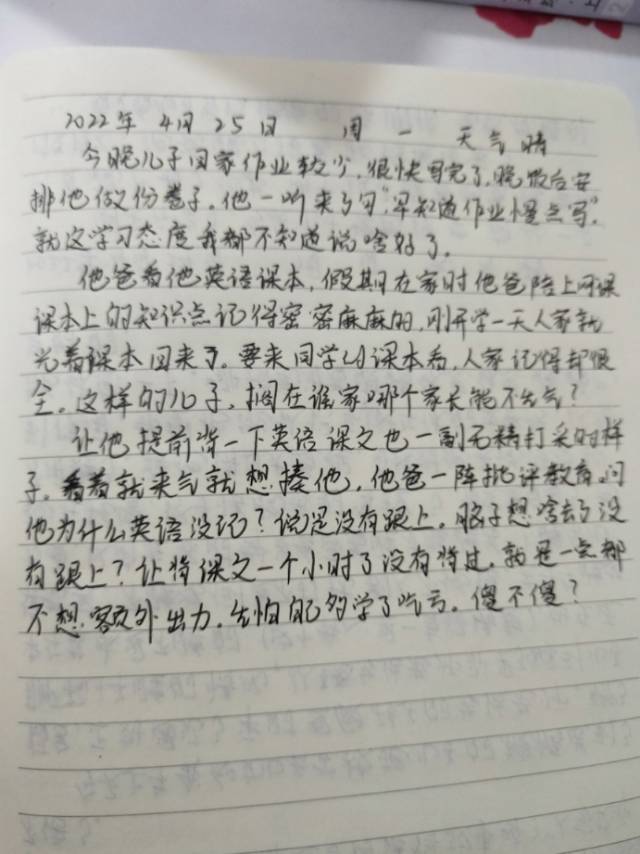 2022年 4月 25日 周一 天气晴
今晚儿子回家作业较少,很快写完了,晚饭后安
排他做份卷子。他一听来了句,"早知道作业慢点写"。
就这学习态度我都不知道说啥好了。
他爸看他英语课本,假期在家时他爸陪上网课
课本上的知识点记得密密麻麻的,刚开学一天人家就
光着课本回来了。要来同学的课本看,人家记得都很
全。这样的儿子,搁在谁家哪个家长能不生气?
让他提前背一下英语课文也一副无精打采的样
子。看着就来气就想揍他,他爸一阵批评教育,问
他为什么英语没记?说是没有跟上。脑子想啥去了没
有跟上?让背课文一个小时了没有背过,就是一点都
不想额外出力。生怕自己多学了吃亏。傻不傻?